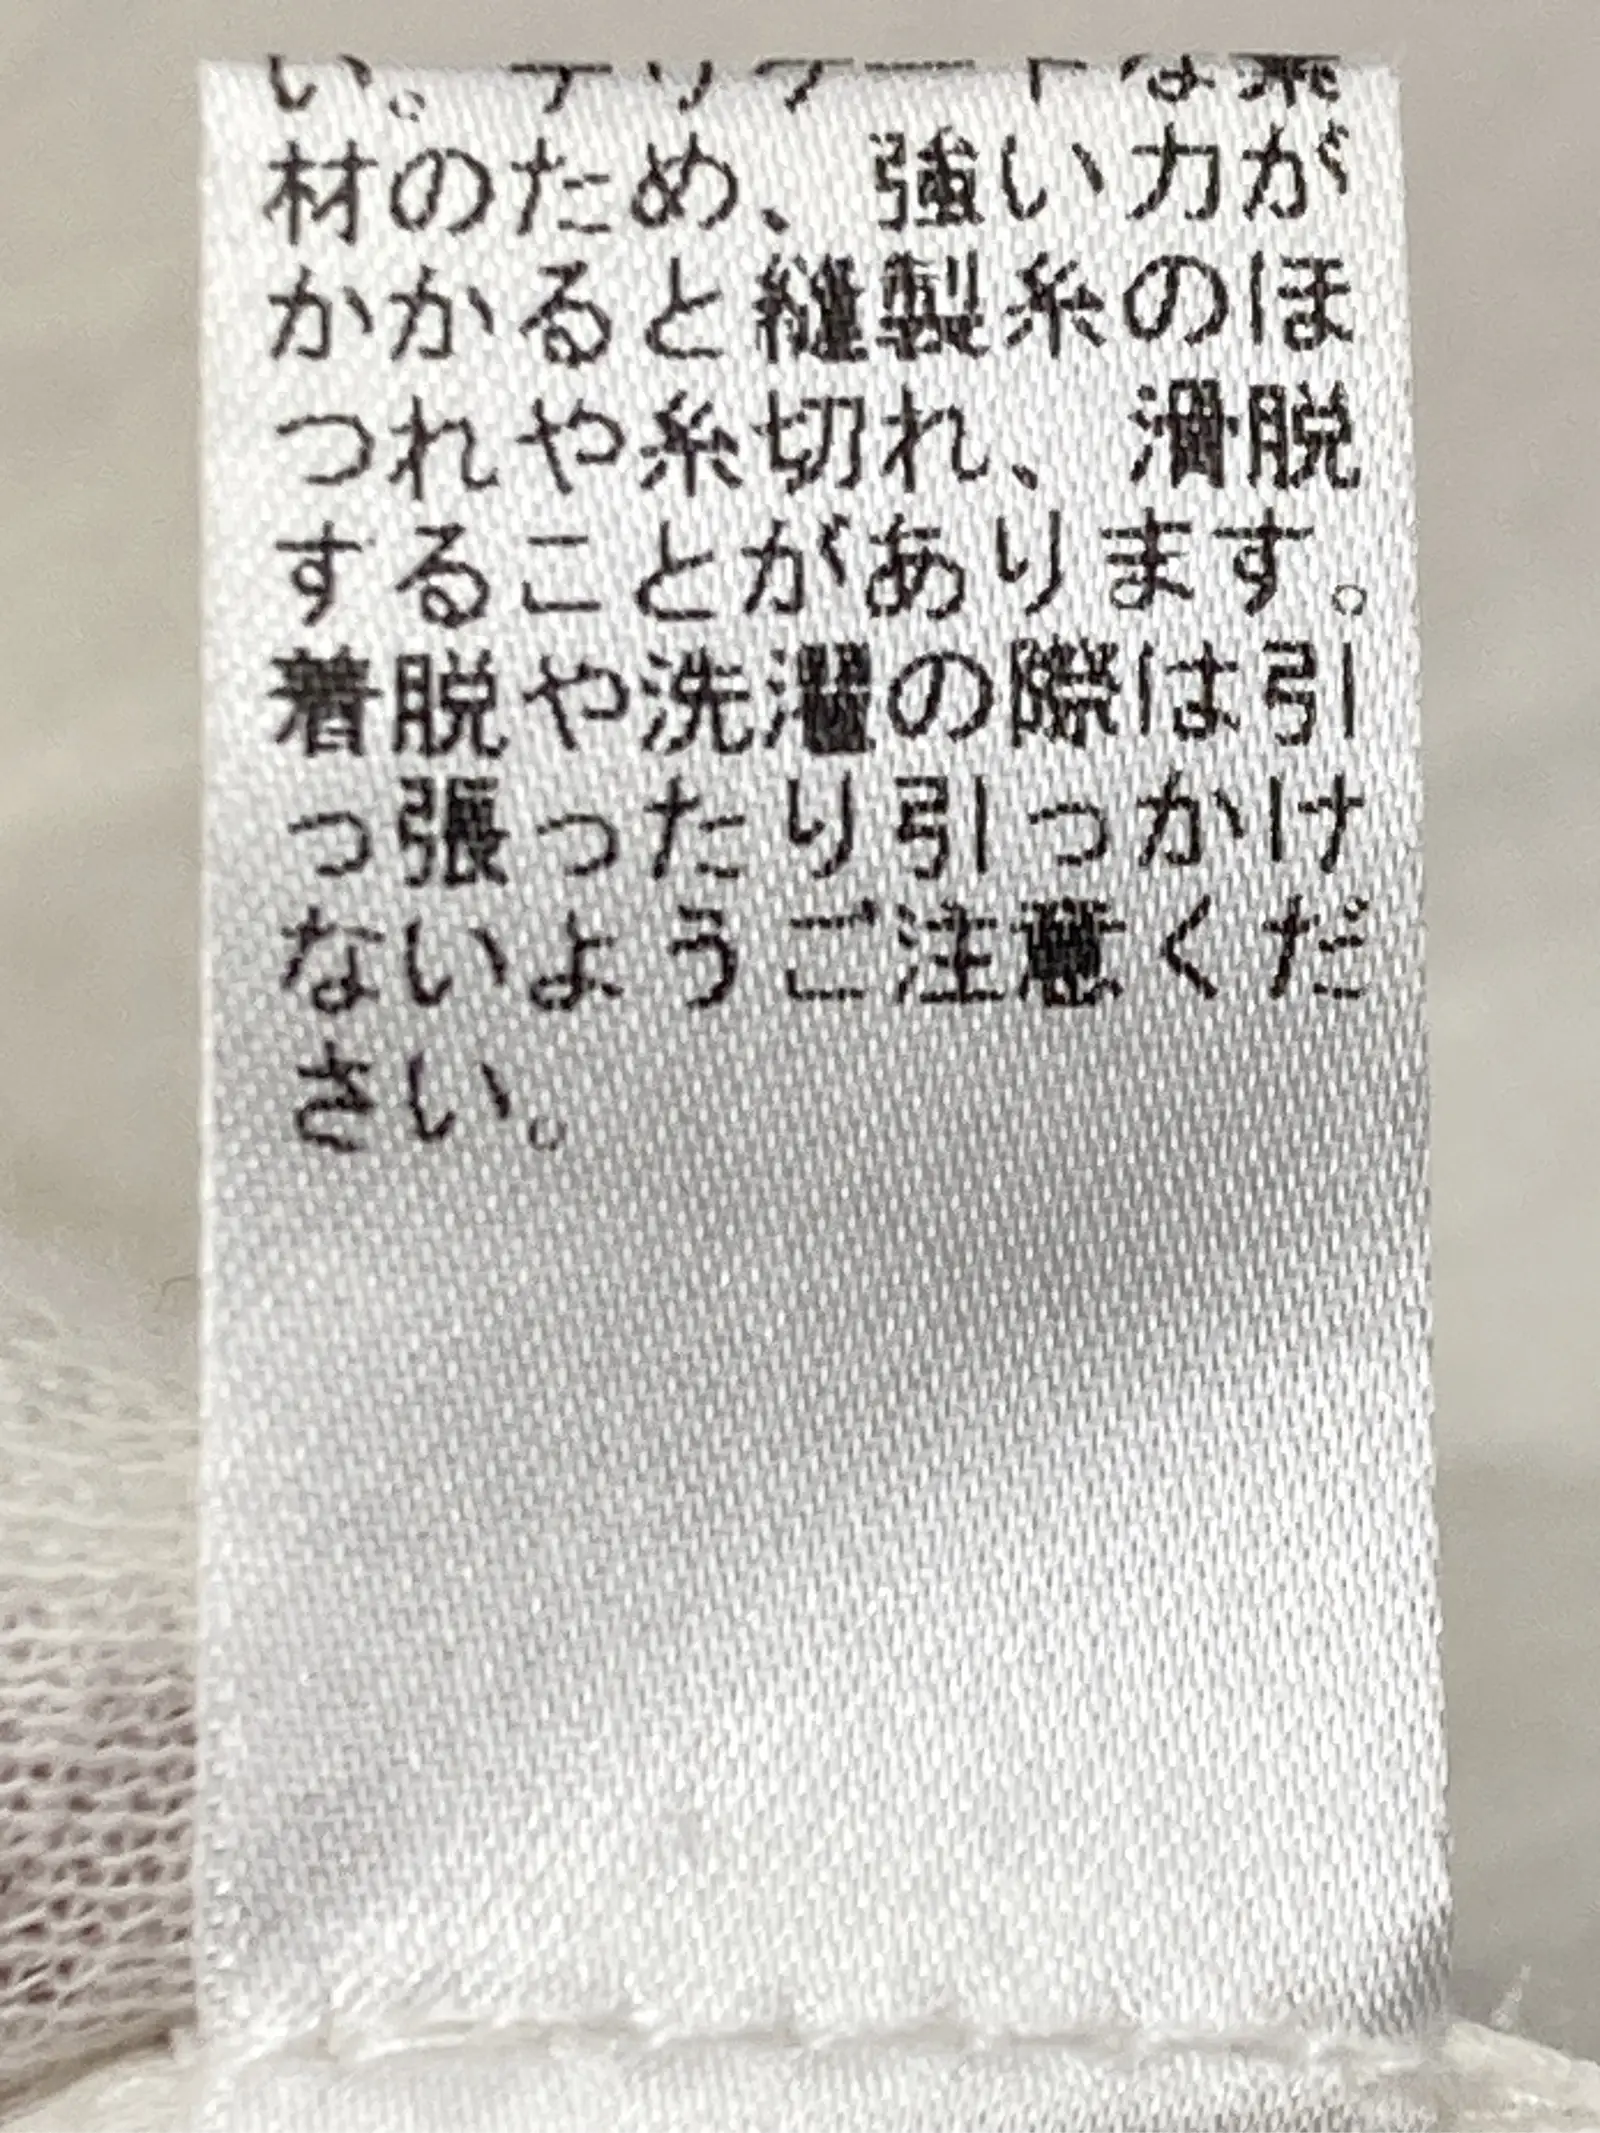 い。デリケートな素
材のため、強い力が
かかると縫製糸のほ
つれや糸切れ、滑脱
することがあります。
着脱や洗濯の際は引
っ張ったり引っかけ
ないようご注意くだ
さい。